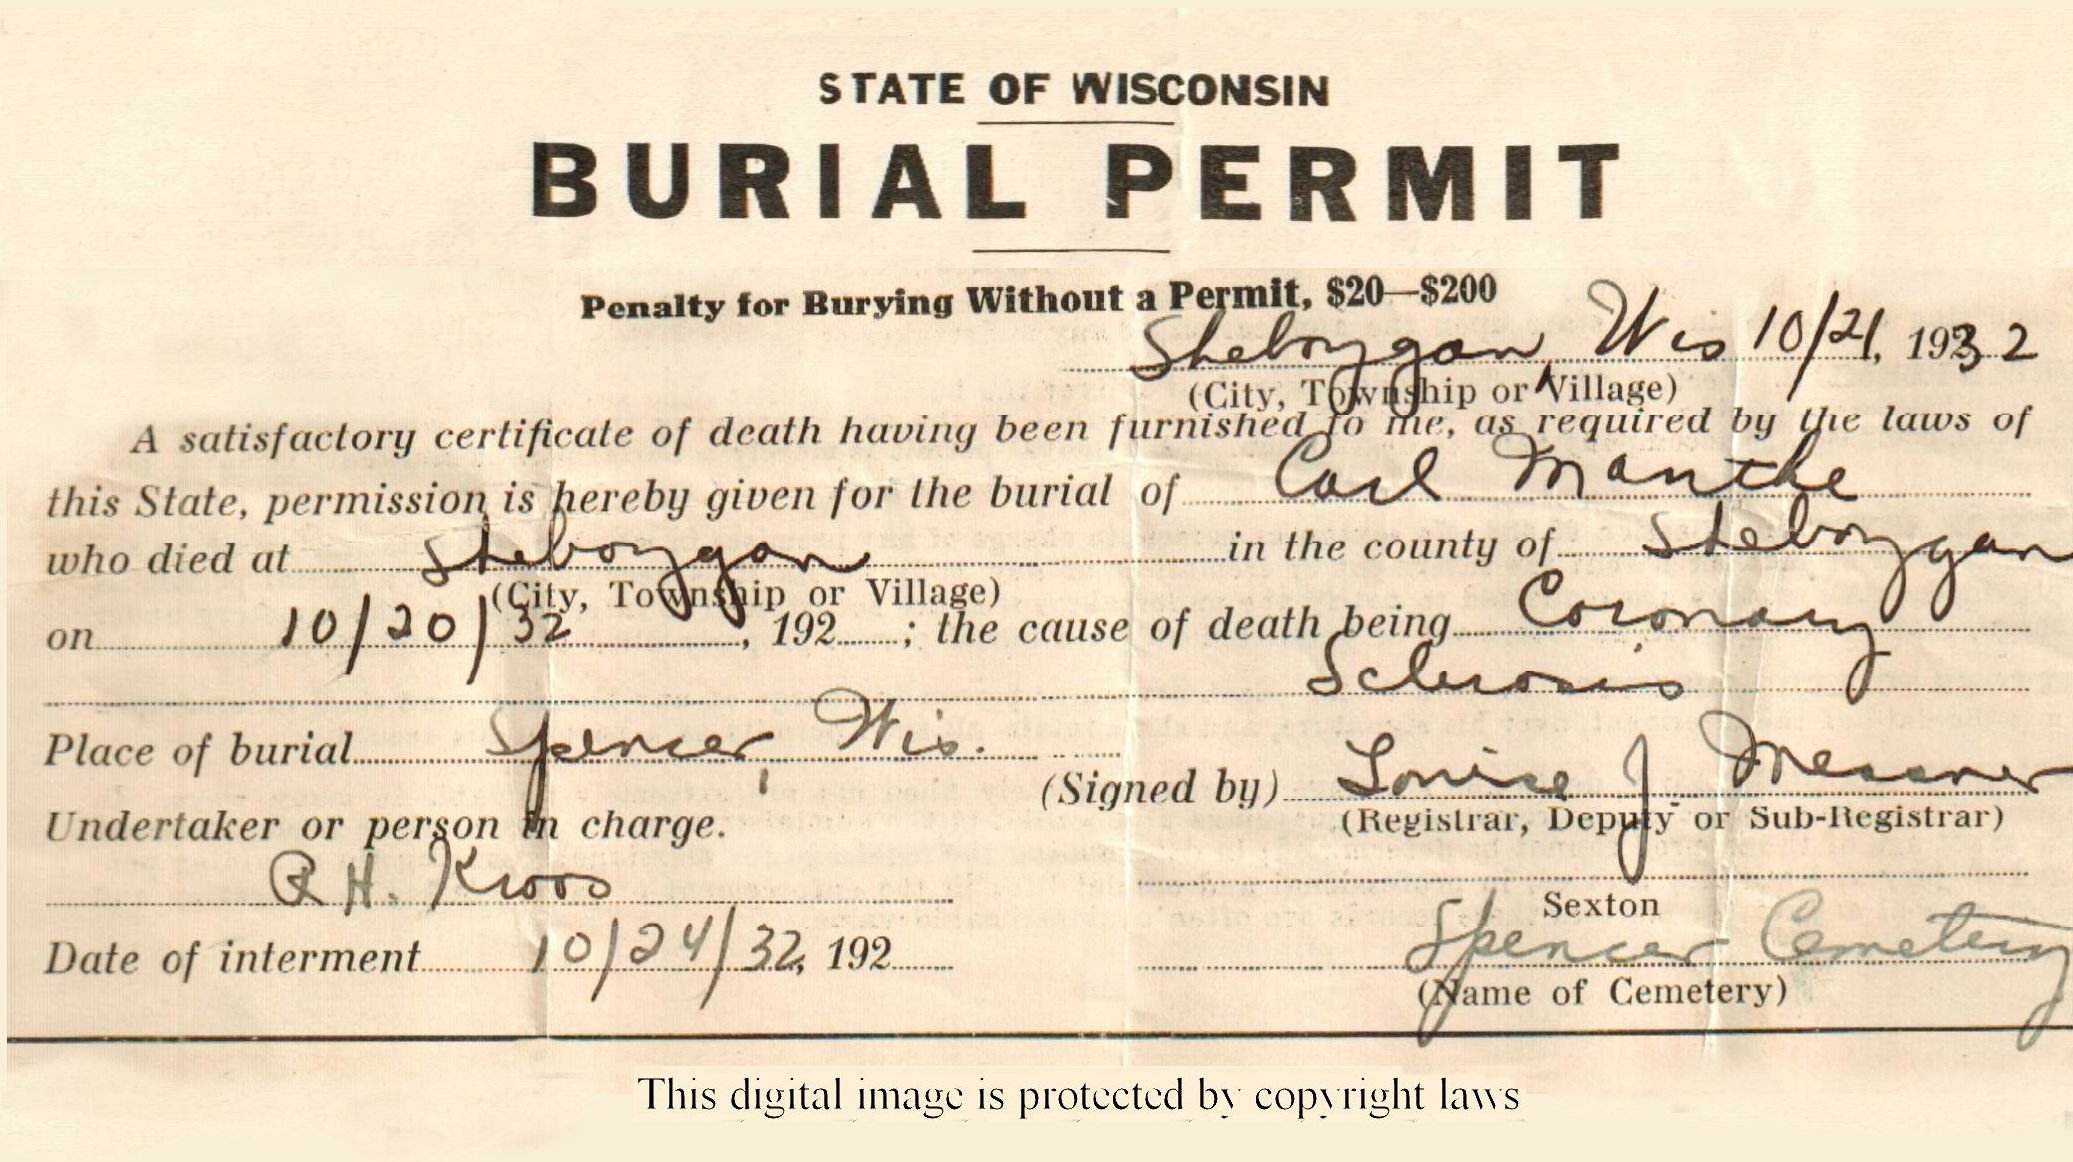 STATE OF WISCONSIN
BURIAL PERMIT
Penalty for Burying Without a Permit, $20—$200
Sheboygan, Wis 10/21, 1932
(City, Township or Village)
A satisfactory certificate of death having been furnished to me, as required by the laws of
this State, permission is hereby given for the burial of Carl Manthe
who died at Sheboygan in the county of Sheboygan
(City, Township or Village)
on 10/20/32, 192 ; the cause of death being Coronary
Sclerosis
Place of burial Spencer, Wis.
(Signed by) Louise J Messner
(Registrar, Deputy or Sub-Registrar)
Undertaker or person in charge.
R H. Kroos
Sexton
Date of interment 10/24/32, 192
Spencer Cemetery
(Name of Cemetery)
This digital image is protected by copyright laws